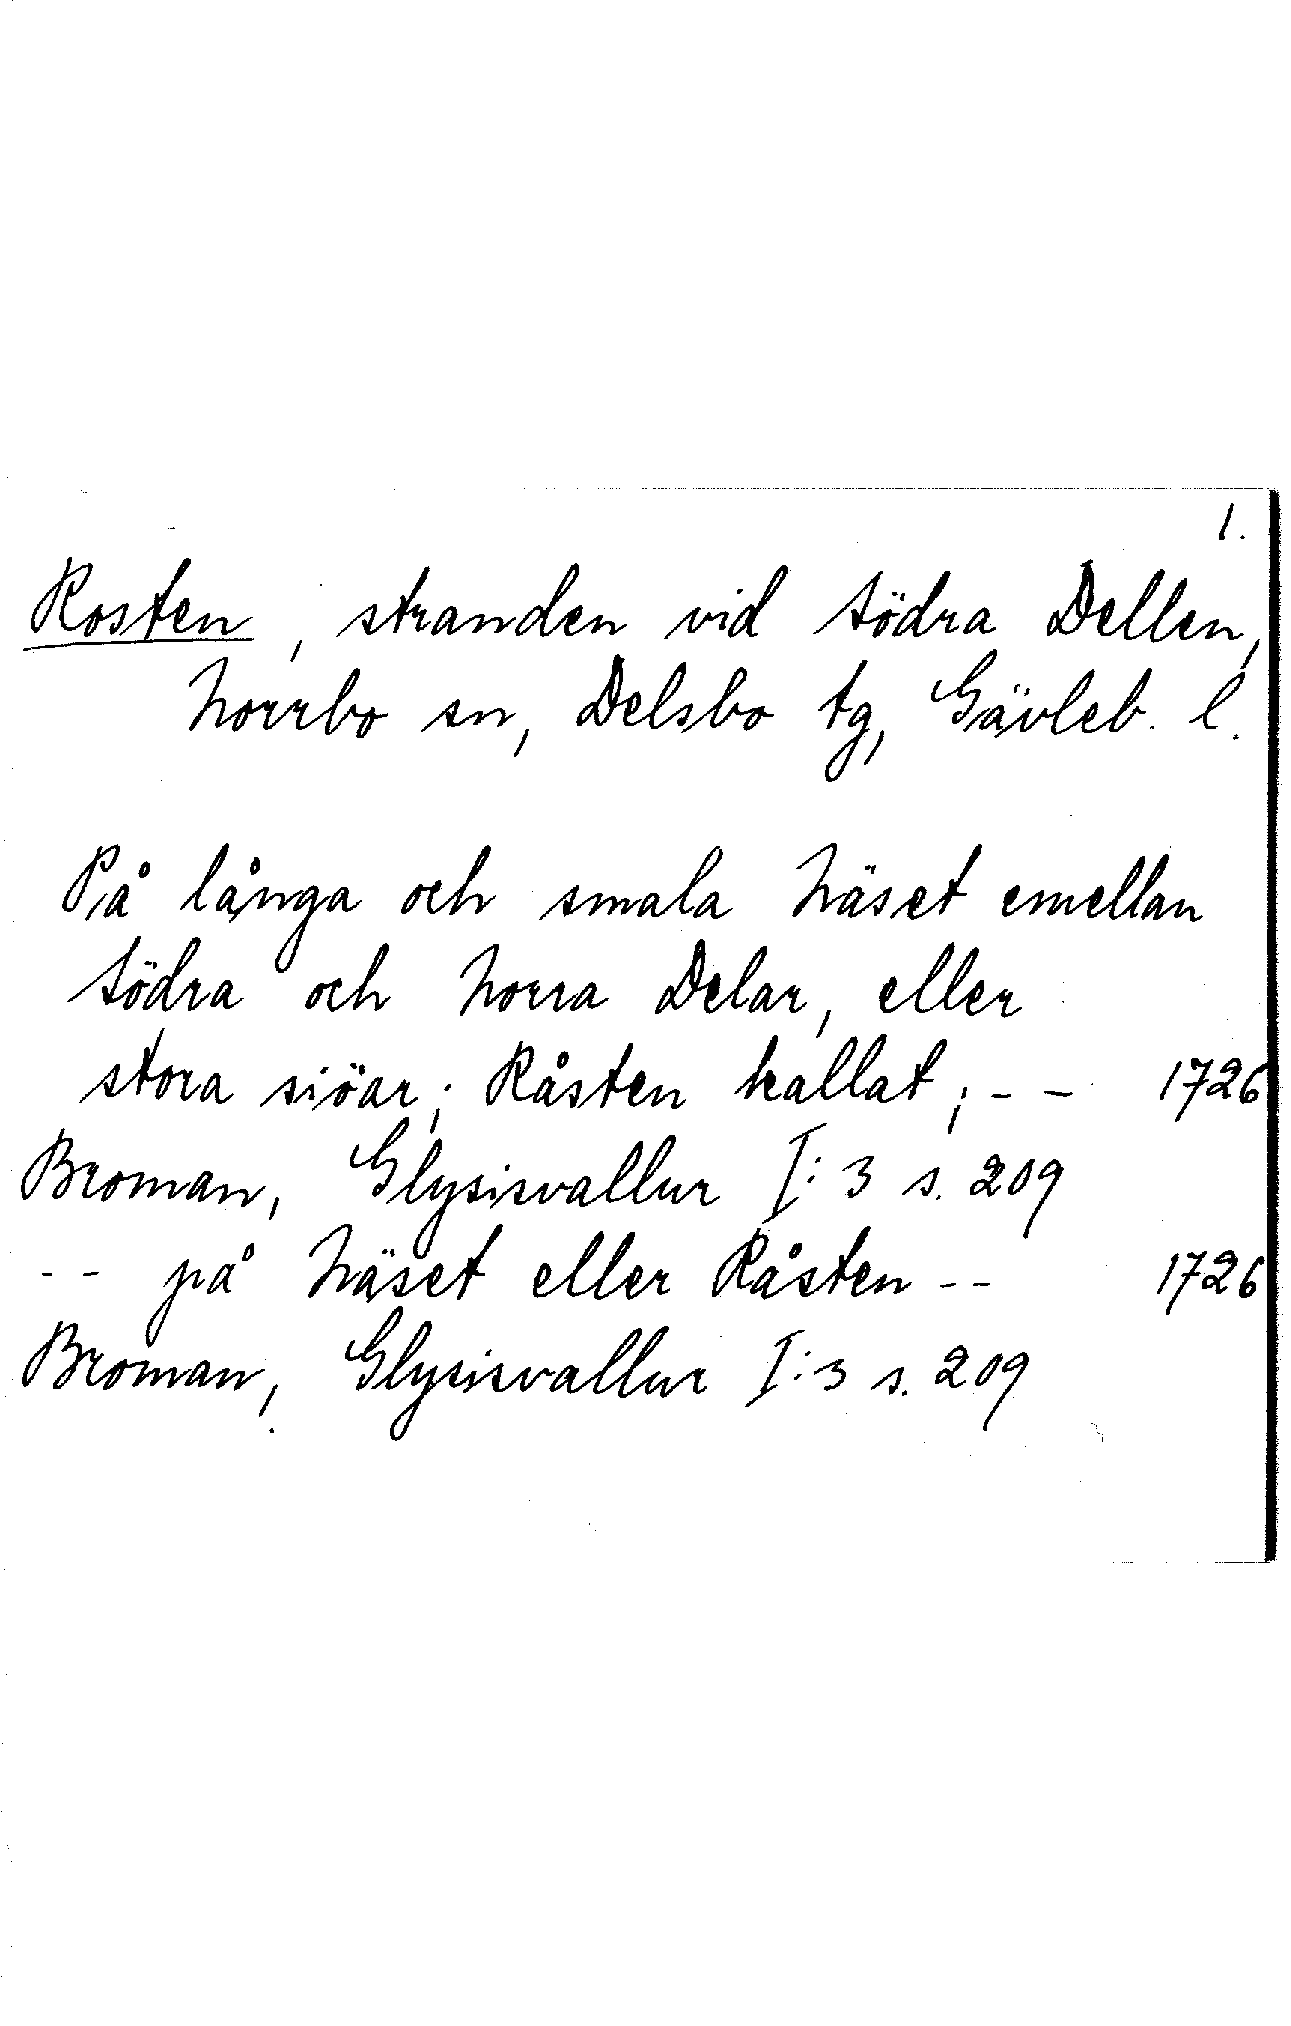 1.
Rosten, stranden vid Södra Dellen,
Norrbo sn, Delsbo tg, Gävleb. l.
På långa och smala Näset emellan
Södra och Norra Delar, eller
stora siöar; Råsten kallat; - - 1726
Broman, Glysisvallur I:3 s. 209
- - på Näset eller Råsten - - 1726
Broman, Glysisvallur I:3 s. 209